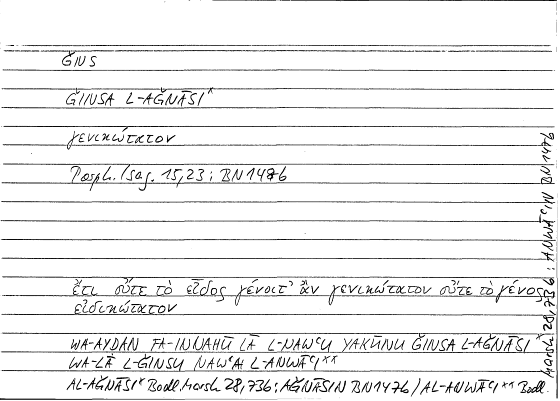 ǦINS
ǦINSA L-AǦNĀSI*
γενικώτατον
Porph. Isag. 15,23; BN 147b
ἔτι οὔτε τὸ εἶδος γένοιτ' ἂν γενικώτατον οὔτε τὸ γένος
εἰδικώτατον
WA-AYḌAN FA-INNAHŪ LĀ L-NAWʿU YAKŪNU ǦINSA L-AǦNĀSI*
WA-LĀ L-ǦINSU NAWʿA L-ANWĀʿI**
AL-AǦNĀSI* Bodl. Marsh 28,73b; AǦNĀSIN BN 147b / AL-ANWĀʿI** Bodl.
Marsh 28,73b; ANWĀʿIN BN 147b